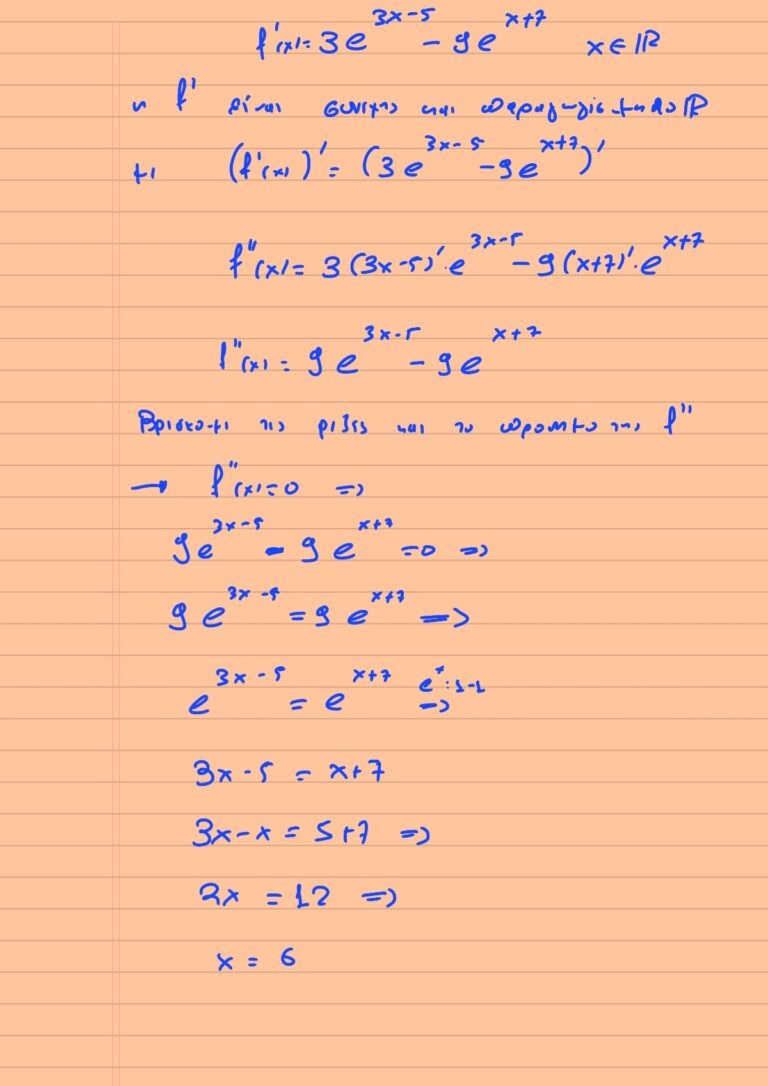 f'(x) = 3e^{3x-5} - 9e^{x+7} x ∈ ℝ
η f' είναι συνεχης και παραγωγισιμη στο ℝ
με (f'(x))' = (3e^{3x-5} - 9e^{x+7})'
f''(x) = 3(3x-5)'·e^{3x-5} - 9(x+7)'·e^{x+7}
f''(x) = 9e^{3x-5} - 9e^{x+7}
Βρισκουμε τις ριζες και το προσημο της f''
→ f''(x) = 0 =>
9e^{3x-5} - 9e^{x+7} = 0 =>
9e^{3x-5} = 9e^{x+7} =>
e^{3x-5} = e^{x+7} e^x: 1-1 =>
3x-5 = x+7
3x-x = 5+7 =>
2x = 12 =>
x = 6